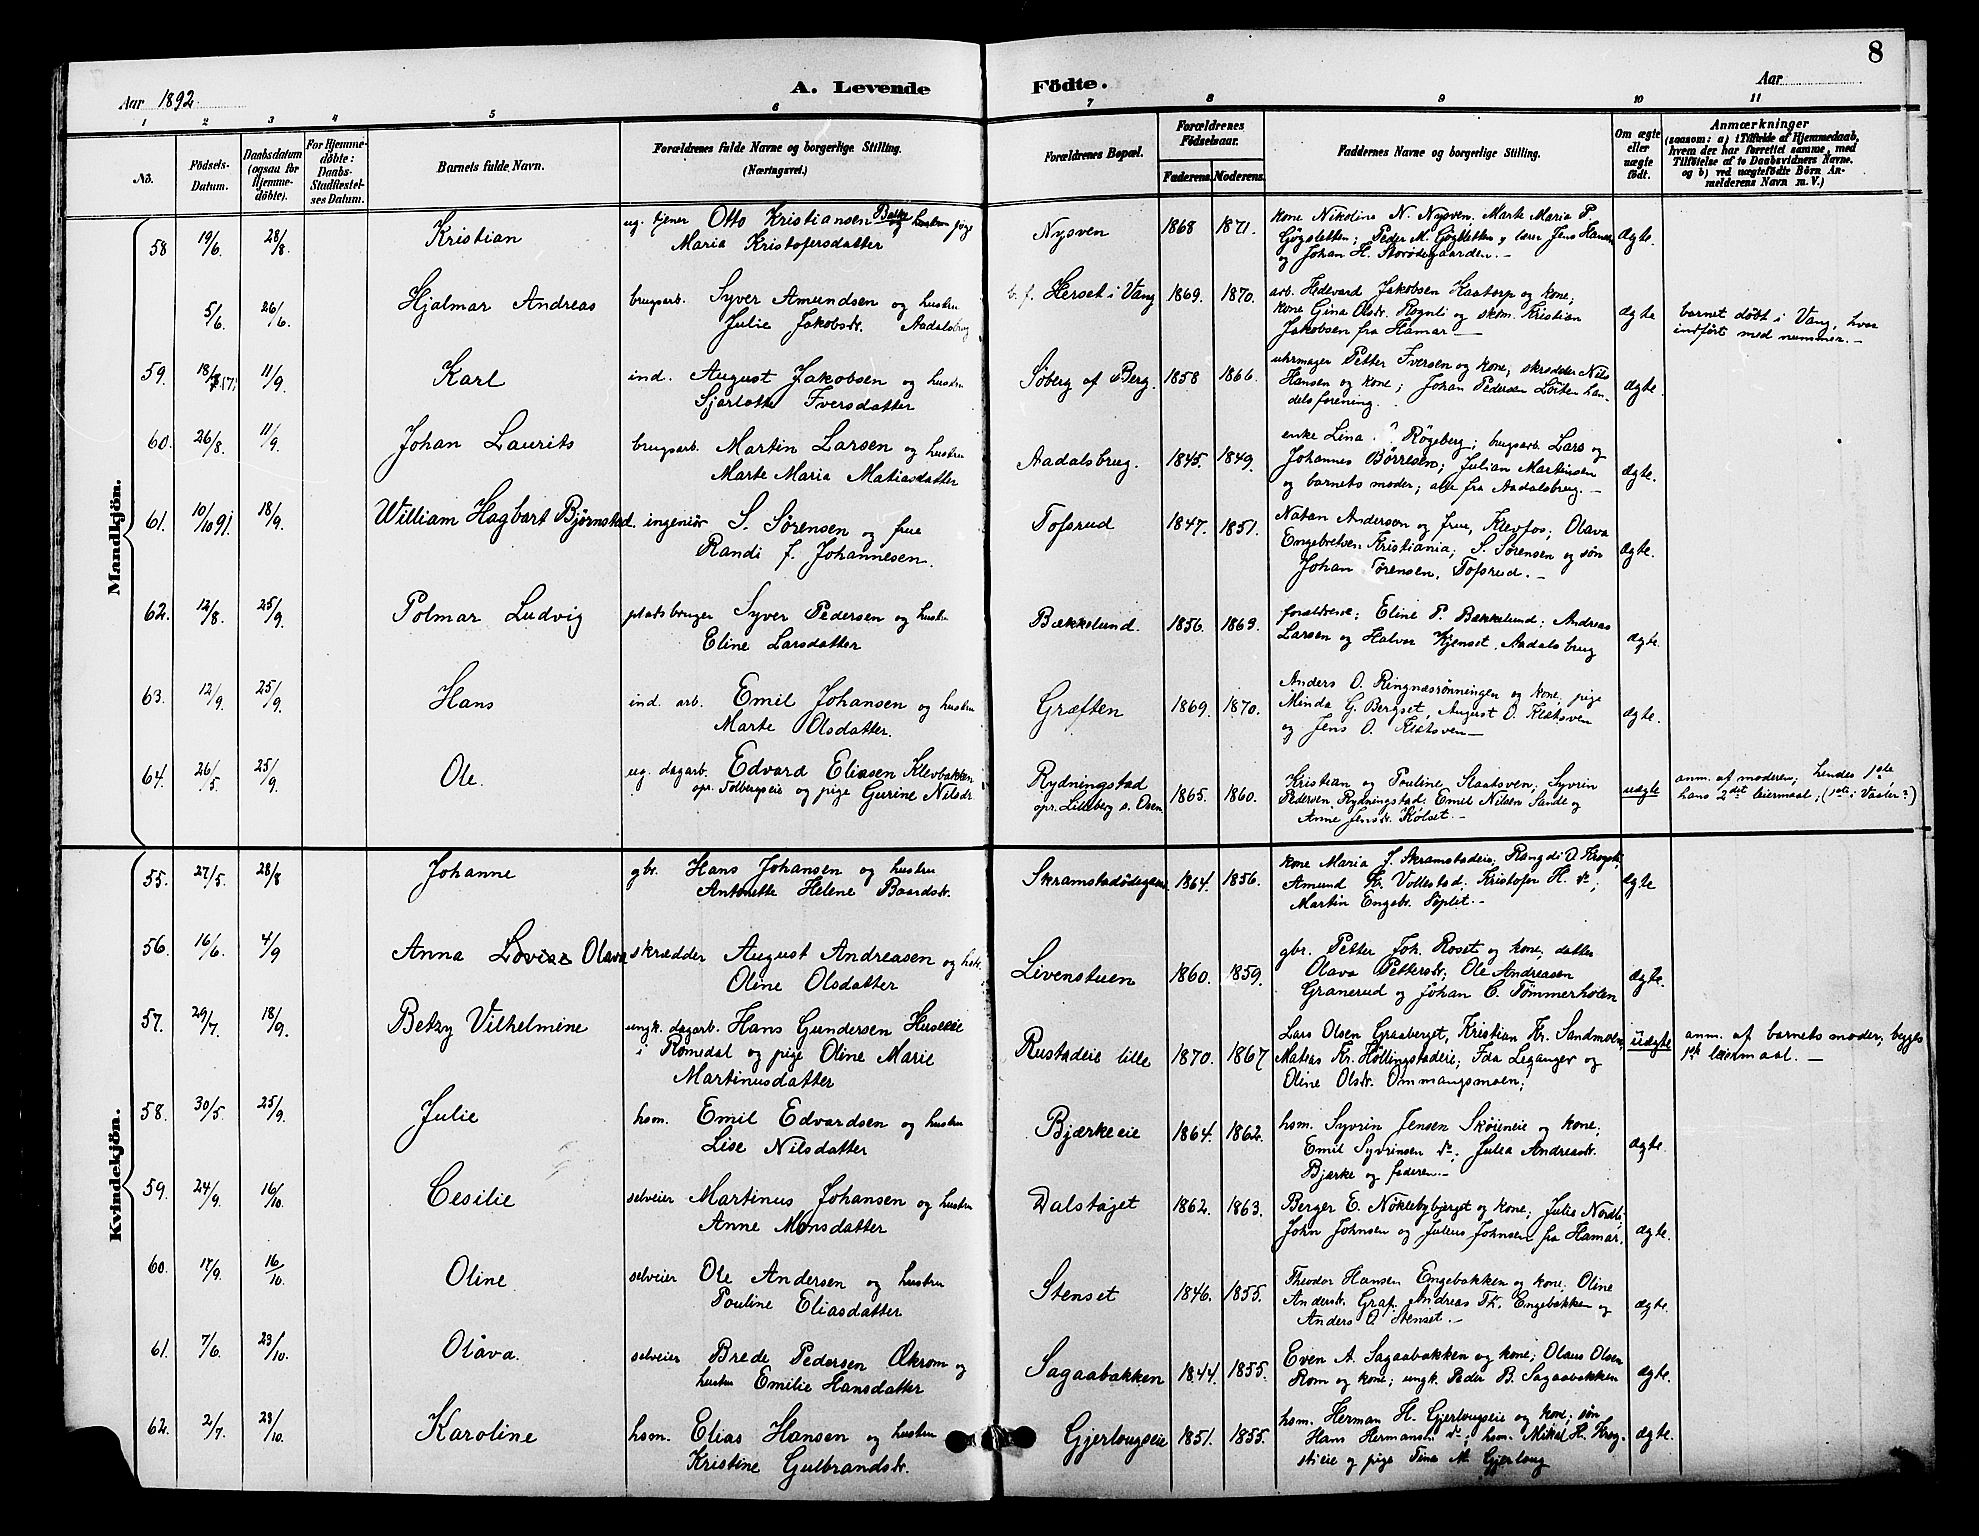 8
Aar 1892.
A. Levende Födte.
Aar
1 2 3 4 5 6 7 8 9 10 11
No.
Födsels-Datum.
Daabsdatum (ogsaa for Hjemmedöbte).
For Hjemmedöbte: Daabs-Stadfæstelses Datum.
Barnets fulde Navn.
Forældrenes fulde Navne og borgerlige Stilling.
(Næringsvei.)
Forældrenes Bopæl.
Forældrenes Födselsaar.
Faderens. Moderens.
Faddernes Navne og borgerlige Stilling.
Om ægte eller uægte födt.
Anmærkninger
(saasom: a) i Tilfælde af Hjemmedaab, hvem der har forrettet samme, med Tilföielse af to Daabsvidners Navne. og b) ved uægtefödte Börn Anmelderens Navn m. V.)
Mandkjön.
58 19/6. 28/8. Kristian ug. tjener Otto Kristiansen og hustru pige Nysven 1868 1871. kone Nikoline N. Nysven. Marte Maria P.
Maria Kristofersdatter Gögsletten; Peder M. Gögsletten, lærer Jens Hansen Ægte.
og Johan H. Storödegaarden. —
5/6. 26/6. Hjalmar Andreas brugsarb. Syver Amundsen og hustru b. f. Herset i Vang 1869. 1870. arb. Hedevard Jakobsen Kaatorp og kone;
Julie Jakobsdr. Aadalsbrug kone Gina Olsdr. Rognli og skom. Kristian Ægte barnet döbt i Vang, hvor
Jakobsen fra Hamar — indfört med nummer. —
59. 18/7 11/9. Karl ind. August Jakobsen og hustru Söberg af Berg. 1858 1866. uhrmager Petter Iversen og kone; skrædder Nils
Sjarlotte Iversdatter Hansen og kone; Johan Pedersen Löiten han- Ægte.
delsforening.
60. 26/8. 11/9. Johan Laurits brugsarb. Martin Larsen og hustru Aadalsbrug. 1845. 1849. enke Lina ? Rögeberg; brugsarb. Lars og
Marte Maria Matiasdatter Johannes Börresen; Julian Martinsen Ægte.
og barnets moder; alle fra Aadalsbrug. —
61. 10/10 91. 18/9. William Hagbart Björnstad. ingeniör S. Sörensen og frue Tofsrud 1847. 1851. Natan Andersen og frue, Klevfos; Olava
Randi f. Johannesen. Engebretsen Kristiania; S. Sörensen og sön Ægte.
Johan Sörensen, Tofsrud. —
62. 12/8. 25/9. Polmar Ludvig pladsbruger Syver Pedersen og hustru Bækkelund. 1856. 1869. forældrene; Eline P. Bækkelund; Andreas
Eline Larsdatter Larsen og Halvor Kjenset, Aadalsbrug Ægte.
63. 12/9. 25/9. Hans ind. arb. Emil Johansen og hustru Græften 1869. 1870. Anders O. Ringnæsrönningen og kone, pige
Marte Olsdatter. Minda G. Bergset, August O. Klætsven Ægte.
og Jens O. Klætsven —
64. 26/5. 25/9. Ole. ug. dagarb. Edvard Eliasen Klevbakken Rydningstad 1865. 1860. Kristian og Pouline Staatsven; Syvrin anm. af moderen; hendes 1ste
opr. Tolbergseie og pige Gurine Nilsdr. opr. Lilleberg s. Elven Pedersen Rydningstad. Emil Nilsen Sande og uægte hans 2det leiermaal; (1ste i Vaaler?)
Anne Jensdr. Kolset. —
Kvindekjön.
55. 27/5. 28/8 Johanne gbr. Hans Johansen og hustru Skramstadödegaard 1864. 1856. kone Maria J. Skramstadeie, Rangdi O.
Antonette Helene Baardsdr. Amund Kr. Vollestad. Kristofer H. do; Ægte
Martin Engebr. Söplet. —
56. 16/6. 4/9 Anna Lovise Olava skrædder August Andreasen og hstr. Livenstuen 1860. 1859. gbr. Petter Joh. Roset og kone; datter
Oline Olsdatter Olava Pettersdr; Ole Andreasen Ægte.
Granerud og Johan C. Tömmerholen
57. 29/7. 18/9. Betzy Vilhelmine ungk. dagarb. Hans Gundersen Huseeie Rustadeie lille 1870. 1867 Lars Olsen Graaberget, Kristian Kr. Sandmoen, anm. af barnets moder; begges
i Romedal og pige Oline Marie Matias Kr. Hollingstadeie; Ida Leganger og uægte 1ste leiermaal. —
Martinusdatter Oline Olsdr. Ommangsmoen;
58. 30/5. 25/9. Julie hsm. Emil Edvardsen og hustru Bjærkeeie 1864. 1862. hsm. Syvrin Jensen Sköieneie og kone;
Lise Nilsdatter Emil Syvrinsen do; Julia Andreasdr. Ægte.
Bjærke og faderen. —
59. 24/9. 16/10. Cesilie selveier Martinus Johansen og hustru Dalstöjet 1862. 1863. Berger E. Nöklebybjerget og kone; Julie Nordli;
Anne Monsdatter John Johnsen og Julius Johnsen fra Hamar. Ægte.
60. 17/9. 16/10. Oline selveier Ole Andersen og hustru Stenset 1846. 1855. Theodor Hansen Engebakken og kone; Oline
Pouline Eliasdatter Andersdr. Graf. Andreas Th. Engebakken og Ægte.
Anders O Stenset. —
61. 7/6. 23/10. Olava. selveier Brede Pedersen Økrom og Sagaabakken 1844. 1855. Even A. Sagaabakken og kone; Olaus Olsen
hustru Emilie Hansdatter Rom og kone; ungk. Peder B. Sagaabakken Ægte.
62. 2/7. 23/10. Karoline hsm. Elias Hansen og hustru Gjerlougseie 1851. 1855. hsm. Herman H. Gjerlougseie og kone; sön
Kristine Gulbrandsdr. Hans Hermansen do; hsm. Mikal H. Krog- Ægte.
stieie og pige Tina M. Gjerloug